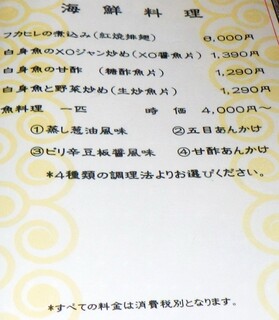 海鮮料理
フカヒレの煮込み(紅焼排翅) 8,000円
白身魚のXOジャン炒め(XO醬魚片) 1,390円
白身魚の甘酢 (糖酢魚片) 1,290円
白身魚と野菜炒め(生炒魚片) 1,290円
魚料理 一匹 時価 4,000円〜
①蒸し葱油風味 ②五目あんかけ
③ピリ辛豆板醤風味 ④甘酢あんかけ
*4種類の調理法よりお選びください。
*すべての料金は消費税別となります。